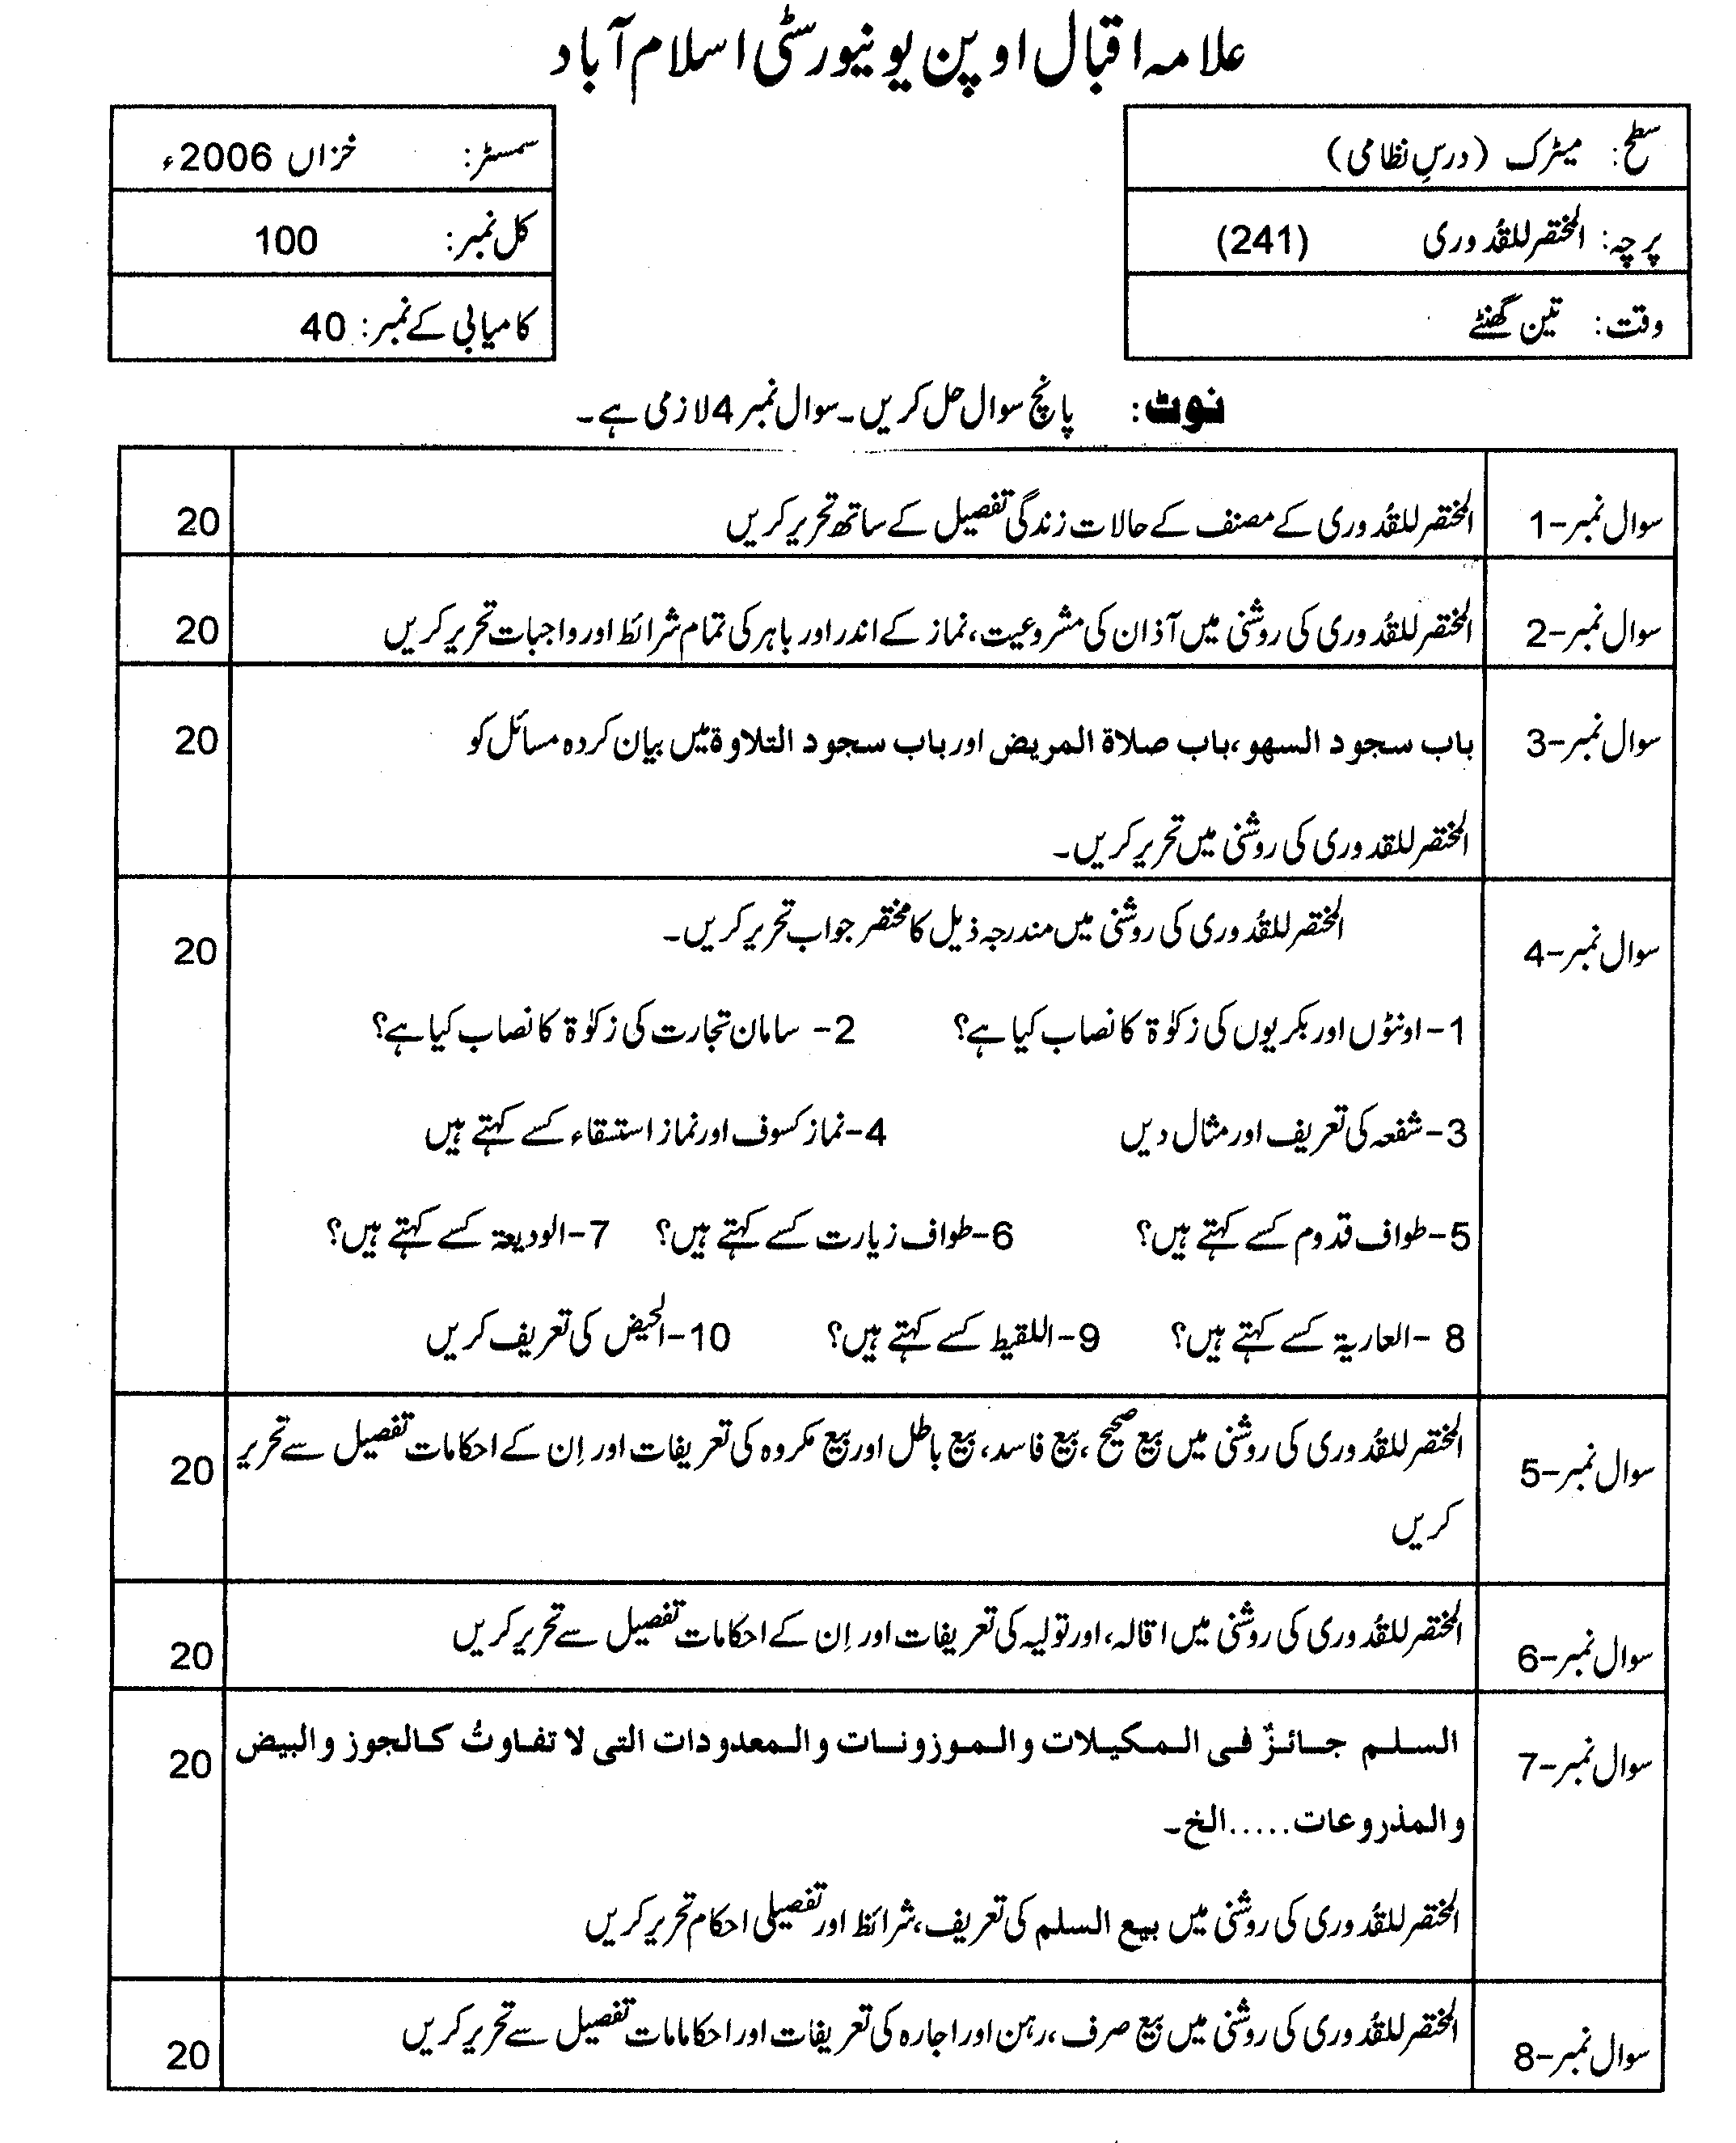 علامہ اقبال اوپن یونیورسٹی اسلام آباد
سطح: میٹرک (درسِ نظامی)
سمسٹر: خزاں 2006ء
پرچہ: المختصر للقُدوری (241)
کل نمبر: 100
وقت: تین گھنٹے
کامیابی کے نمبر: 40
نوٹ: پانچ سوال حل کریں۔ سوال نمبر 4 لازمی ہے۔
سوال نمبر-1 المختصر للقُدوری کے مصنف کے حالات زندگی تفصیل کے ساتھ تحریر کریں 20
سوال نمبر-2 المختصر للقُدوری کی روشنی میں آذان کی مشروعیت، نماز کے اندر اور باہر کی تمام شرائط اور واجبات تحریر کریں 20
سوال نمبر-3 باب سجود السهو، باب صلاة المريض اور باب سجود التلاوة میں بیان کردہ مسائل کو 20
المختصر للقدوری کی روشنی میں تحریر کریں۔
سوال نمبر-4 المختصر للقُدوری کی روشنی میں مندرجہ ذیل کا مختصر جواب تحریر کریں۔ 20
1- اونٹوں اور بکریوں کی زکوٰۃ کا نصاب کیا ہے؟ 2- سامان تجارت کی زکوٰۃ کا نصاب کیا ہے؟
3- شفعہ کی تعریف اور مثال دیں 4- نماز کسوف اور نماز استسقاء کسے کہتے ہیں
5- طواف قدوم کسے کہتے ہیں؟ 6- طواف زیارت کسے کہتے ہیں؟ 7- الودیعۃ کسے کہتے ہیں؟
8- العاریۃ کسے کہتے ہیں؟ 9- اللقیط کسے کہتے ہیں؟ 10- الحیض کی تعریف کریں
سوال نمبر-5 المختصر للقُدوری کی روشنی میں بیع صحیح، بیع فاسد، بیع باطل اور بیع مکروہ کی تعریفات اور اِن کے احکامات تفصیل سے تحریر 20
کریں
سوال نمبر-6 المختصر للقُدوری کی روشنی میں اقالہ، اور تولیہ کی تعریفات اور اِن کے احکامات تفصیل سے تحریر کریں 20
سوال نمبر-7 السلم جائزٌ فی المکیلات والموزونات والمعدودات التی لا تفاوتُ کالجوز والبیض 20
والمذروعات.....الخ۔
المختصر للقُدوری کی روشنی میں بیع السلم کی تعریف، شرائط اور تفصیلی احکام تحریر کریں
سوال نمبر-8 المختصر للقُدوری کی روشنی میں بیع صرف، رہن اور اجارہ کی تعریفات اور احکامات تفصیل سے تحریر کریں 20